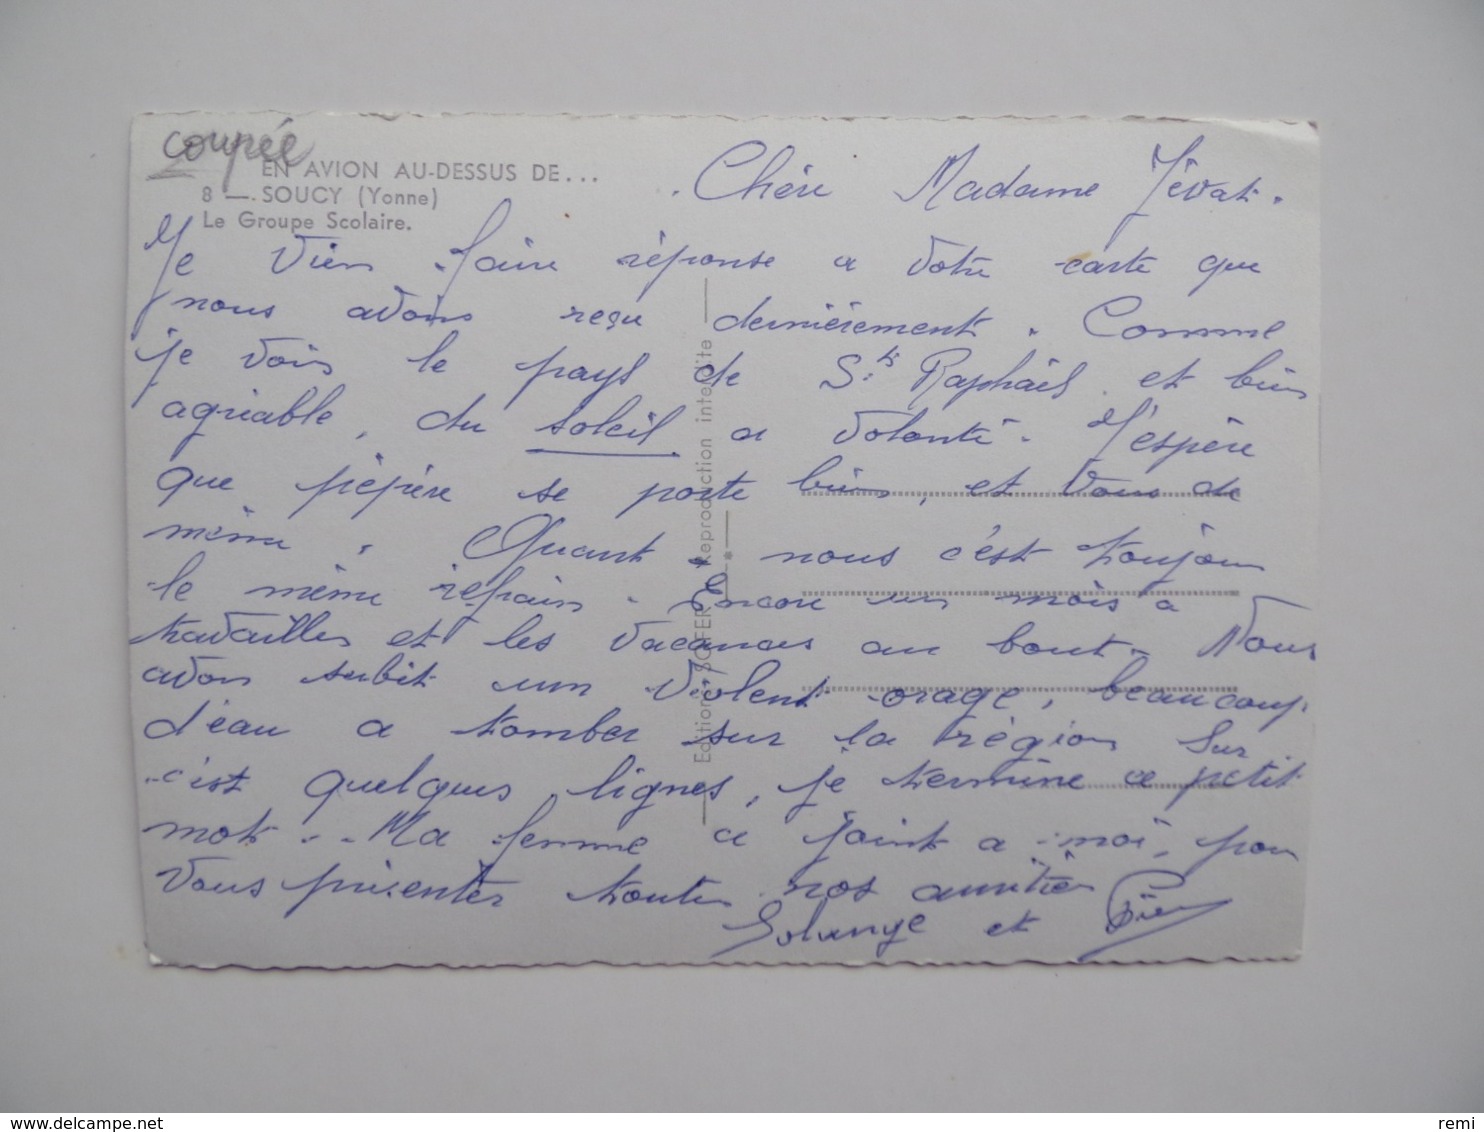 coupée
EN AVION AU-DESSUS DE...
8 — SOUCY (Yonne)
Le Groupe Scolaire.
Chère Madame Jévat.
Je Vien faire réponse a Votre carte que
nous avons reçu dernièrement. Comme
je Vois le pays de Ste Raphaël et bien
agréable, du soleil a Volonté. J'espère
que pépère se porte bien, et Vous de
même. Quant nous c'est toujour
le même refrain. Encore un mois a
travailler et les Vacances au bout. Nous
avon subit un Violent orage, beaucoup
d'eau a tomber sur la région Sur
c'est quelques lignes, je termine ce petit
mot. Ma femme ce joint a moi, pour
Vous présenter toute nos amitiés
Solange et Pierre
Editions SOFER ★ Reproduction interdite
★
delcampe.net
remi